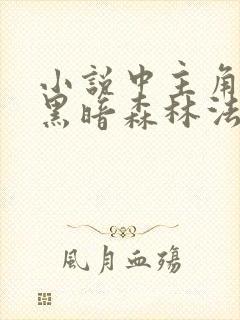 小説中主角
黑暗森林法
風月血殤